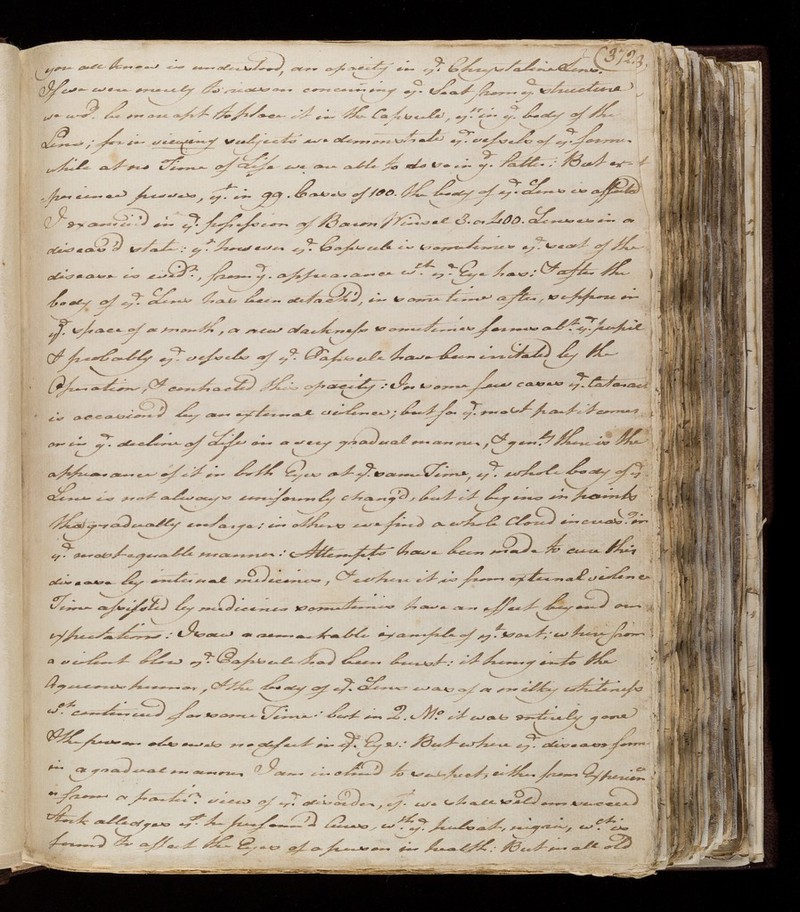 (372
you all know is understood, an opacity in yͤ. Chrystaline Lens.
If we were merely to reason concerning yͤ. Seat from yͤ structure
we wᵈ. be more apt to place it in the Capsule, yⁿ. in yͤ. body of the
Lens; for in viewing subjects we demonstrate yͤ. vessels of yͤ. former
while at no Time of Life we are able to do so in yͤ. latter: But ex
perience proves, yᵗ. in 99. Cases of 100. the body of yͤ. Lens is affected
I examin'd in yͤ. possession of Baron Winsel 3. or 400. Lenses in a
diseas'd state: yᵗ. however yͤ. Capsule is sometimes yͤ. seat of the
disease is evidᵗ., from yͤ. appearance wᶜʰ. yͤ. Eye has: & after the
body of yͤ. Lens has been detach'd, in some time after, suppose in
yͤ. space of a month, a new darkness sometimes forms abᵗ. yͤ. pupil
& probably yͤ. vessels of yͤ. Capsule have been irritated by the
Operation, & contracted this opacity: In some few cases yͤ. Cataract
is occasion'd by an external violence; but for yͤ. most part it comes
on in yͤ. decline of Life in a very gradual manner, & genˡʸ there is the
appearance of it in both Eyes at yͤ. same Time, yͤ. whole body of yͤ
Lens is not always uniformly chang'd, but it begins in points
that gradually enlarge: in others we find a whole Cloud increasᵍ. in
yͤ. most equable manner: Attempts have been made to cure this
disease by internal medicines, & where it is from external violence
Time assisted by medicines sometimes have an effect beyond our
expectations: I saw a remarkable example of yͤ. sort; where from
a violent blow yͤ. Capsule had been burst: it hung into the
Aqueous humor, & the body of yͤ. Lens was of a milky whiteness
wᶜʰ continued for some Time: but in 2. Mᵒ. it was entirely gone
& the person observes no defect in yͤ. Eye: But where yͤ. disease forms
in a gradual manner I am inclin'd to suspect, either from Experienᶜᵉ
or from a partiᵣ. view of yͤ. disorder, yᵗ. we shall seldom succeed
Stork alledges yᵗ. he perform'd Cures, wᵗʰ yͤ. pulsat. nigric, wᶜʰ. is
found to affect the Eyes of a person in health: But in all old